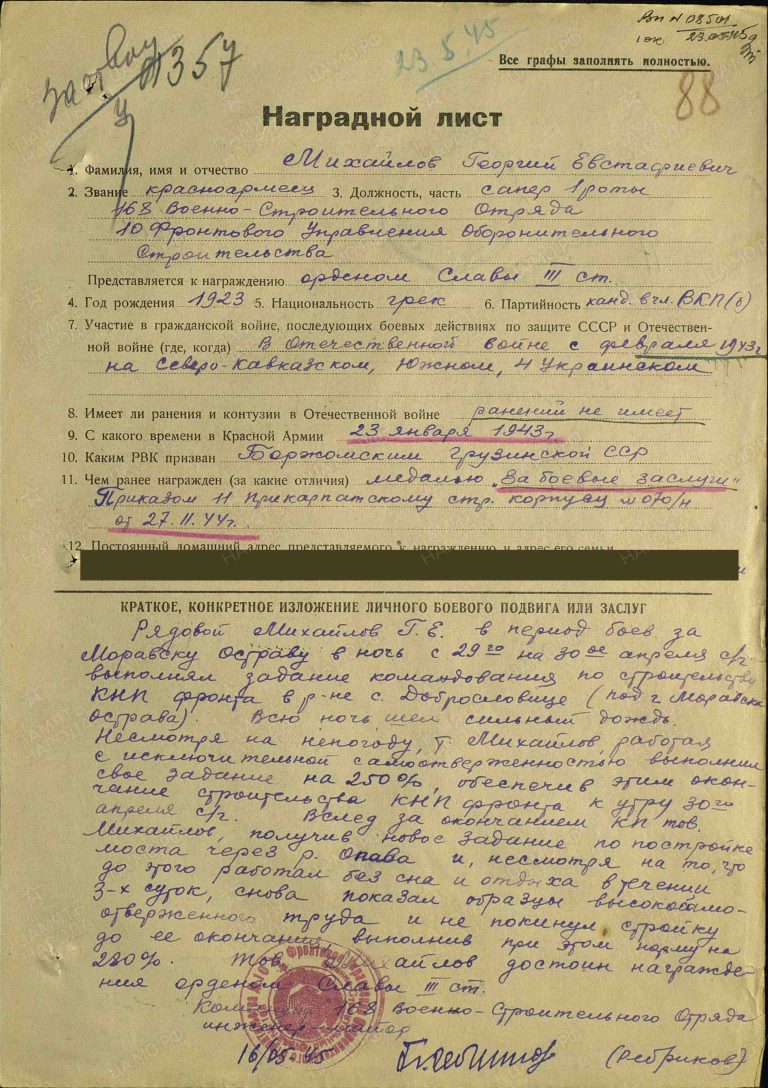 ВП N 08501
23.05.45
357
23.5.45
Все графы заполнять полностью.
88
Наградной лист
1. Фамилия, имя и отчество Михайлов Георгий Евстафиевич
2. Звание красноармеец 3. Должность, часть сапер 1 роты
168 Военно-Строительного Отряда
10 Фронтового Управления Оборонительного
Строительства
Представляется к награждению орденом Славы III ст.
4. Год рождения 1923 5. Национальность грек 6. Партийность канд. в чл. ВКП(б)
7. Участие в гражданской войне, последующих боевых действиях по защите СССР и Отечествен-
ной войне (где, когда) В Отечественной войне с февраля 1943г
на Северо-Кавказском, Южном, 4 Украинском
8. Имеет ли ранения и контузии в Отечественной войне ранений не имеет
9. С какого времени в Красной Армии 23 января 1943г.
10. Каким РВК призван Боржомским Грузинской ССР
11. Чем ранее награжден (за какие отличия) медалью „За боевые заслуги"
Приказом 11 Прикарпатскому стр. корпусу № 070/н
от 27.11.44г.
12. Постоянный домашний адрес представляемого к награждению и адрес его семьи
КРАТКОЕ, КОНКРЕТНОЕ ИЗЛОЖЕНИЕ ЛИЧНОГО БОЕВОГО ПОДВИГА ИЛИ ЗАСЛУГ
Рядовой Михайлов Г.Е. в период боев за
Моравску Остраву в ночь с 29го на 30ое апреля с/г
выполнял задание командования по строительству
КНП фронта в р-не с. Доброславице (под г. Моравска
Острава). Всю ночь шел сильный дождь.
Несмотря на непогоду, т. Михайлов, работая
с исключительной самоотверженностью выполнил
свое задание на 250%, обеспечив этим окон-
чание строительства КНП фронта к утру 30го
апреля с/г. Вслед за окончанием КП тов.
Михайлов, получив новое задание по постройке
моста через р. Опава и, несмотря на то, что
до этого работал без сна и отдыха в течении
3-х суток, снова показал образцы высокосамо-
отверженного труда и не покинул стройку
до ее окончания, выполнив при этом норму на
220%. Тов. Михайлов достоин награжде-
ния орденом Славы III ст.
Командир 168 Военно-Строительного Отряда
инженер-майор
16/05-45 (Ребриков)